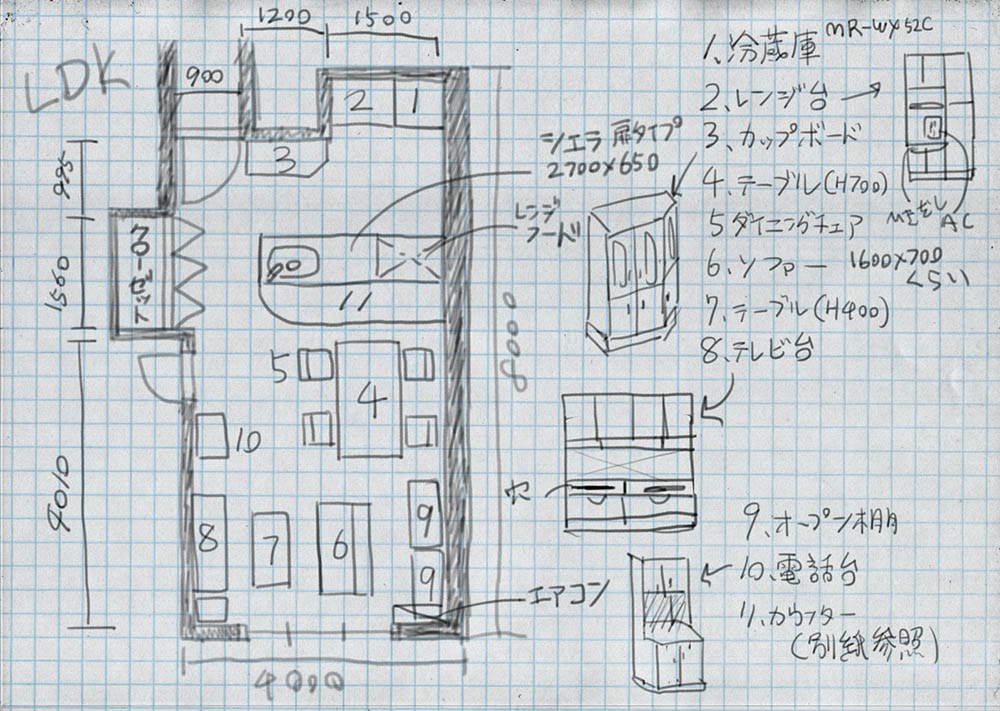 LDK
1200
1500
900
995
1500
4010
8000
4000
クローゼット
1
2
3
4
5
6
7
8
9
9
10
11
シエラ 扉タイプ
2700×650
レンジ
フード
エアコン
穴
1、冷蔵庫 MR-WX52C
2、レンジ台
3、カップボード
4、テーブル(H700)
5 ダイニングチェア
6、ソファー 1600×700
くらい
7、テーブル(H400)
8、テレビ台
9、オープン棚
10、電話台
11、カウンター
(別紙参照)
AC